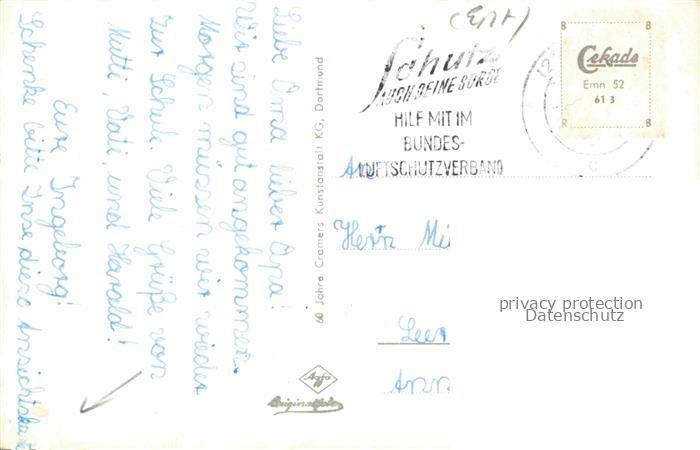 Liebe Oma lieber Opa!
Wir sind gut angekommen.
Morgen müssen wir wieder
zur Schule. Viele Grüße von
Mutti, Vati, und Harald!
Eure Ingeborg!
Schenke bitte Inse diese Ansichtska
60 Jahre Cramers Kunstanstalt KG, Dortmund
Agfa
Originalfoto
Schutz
AUCH DEINE SORGE
HILF MIT IM
BUNDES-
LUFTSCHUTZVERBAND
B B
Cekade
Emn 52
61 3
R B
An
Herrn Mi
Leer
privacy protection
Datenschutz